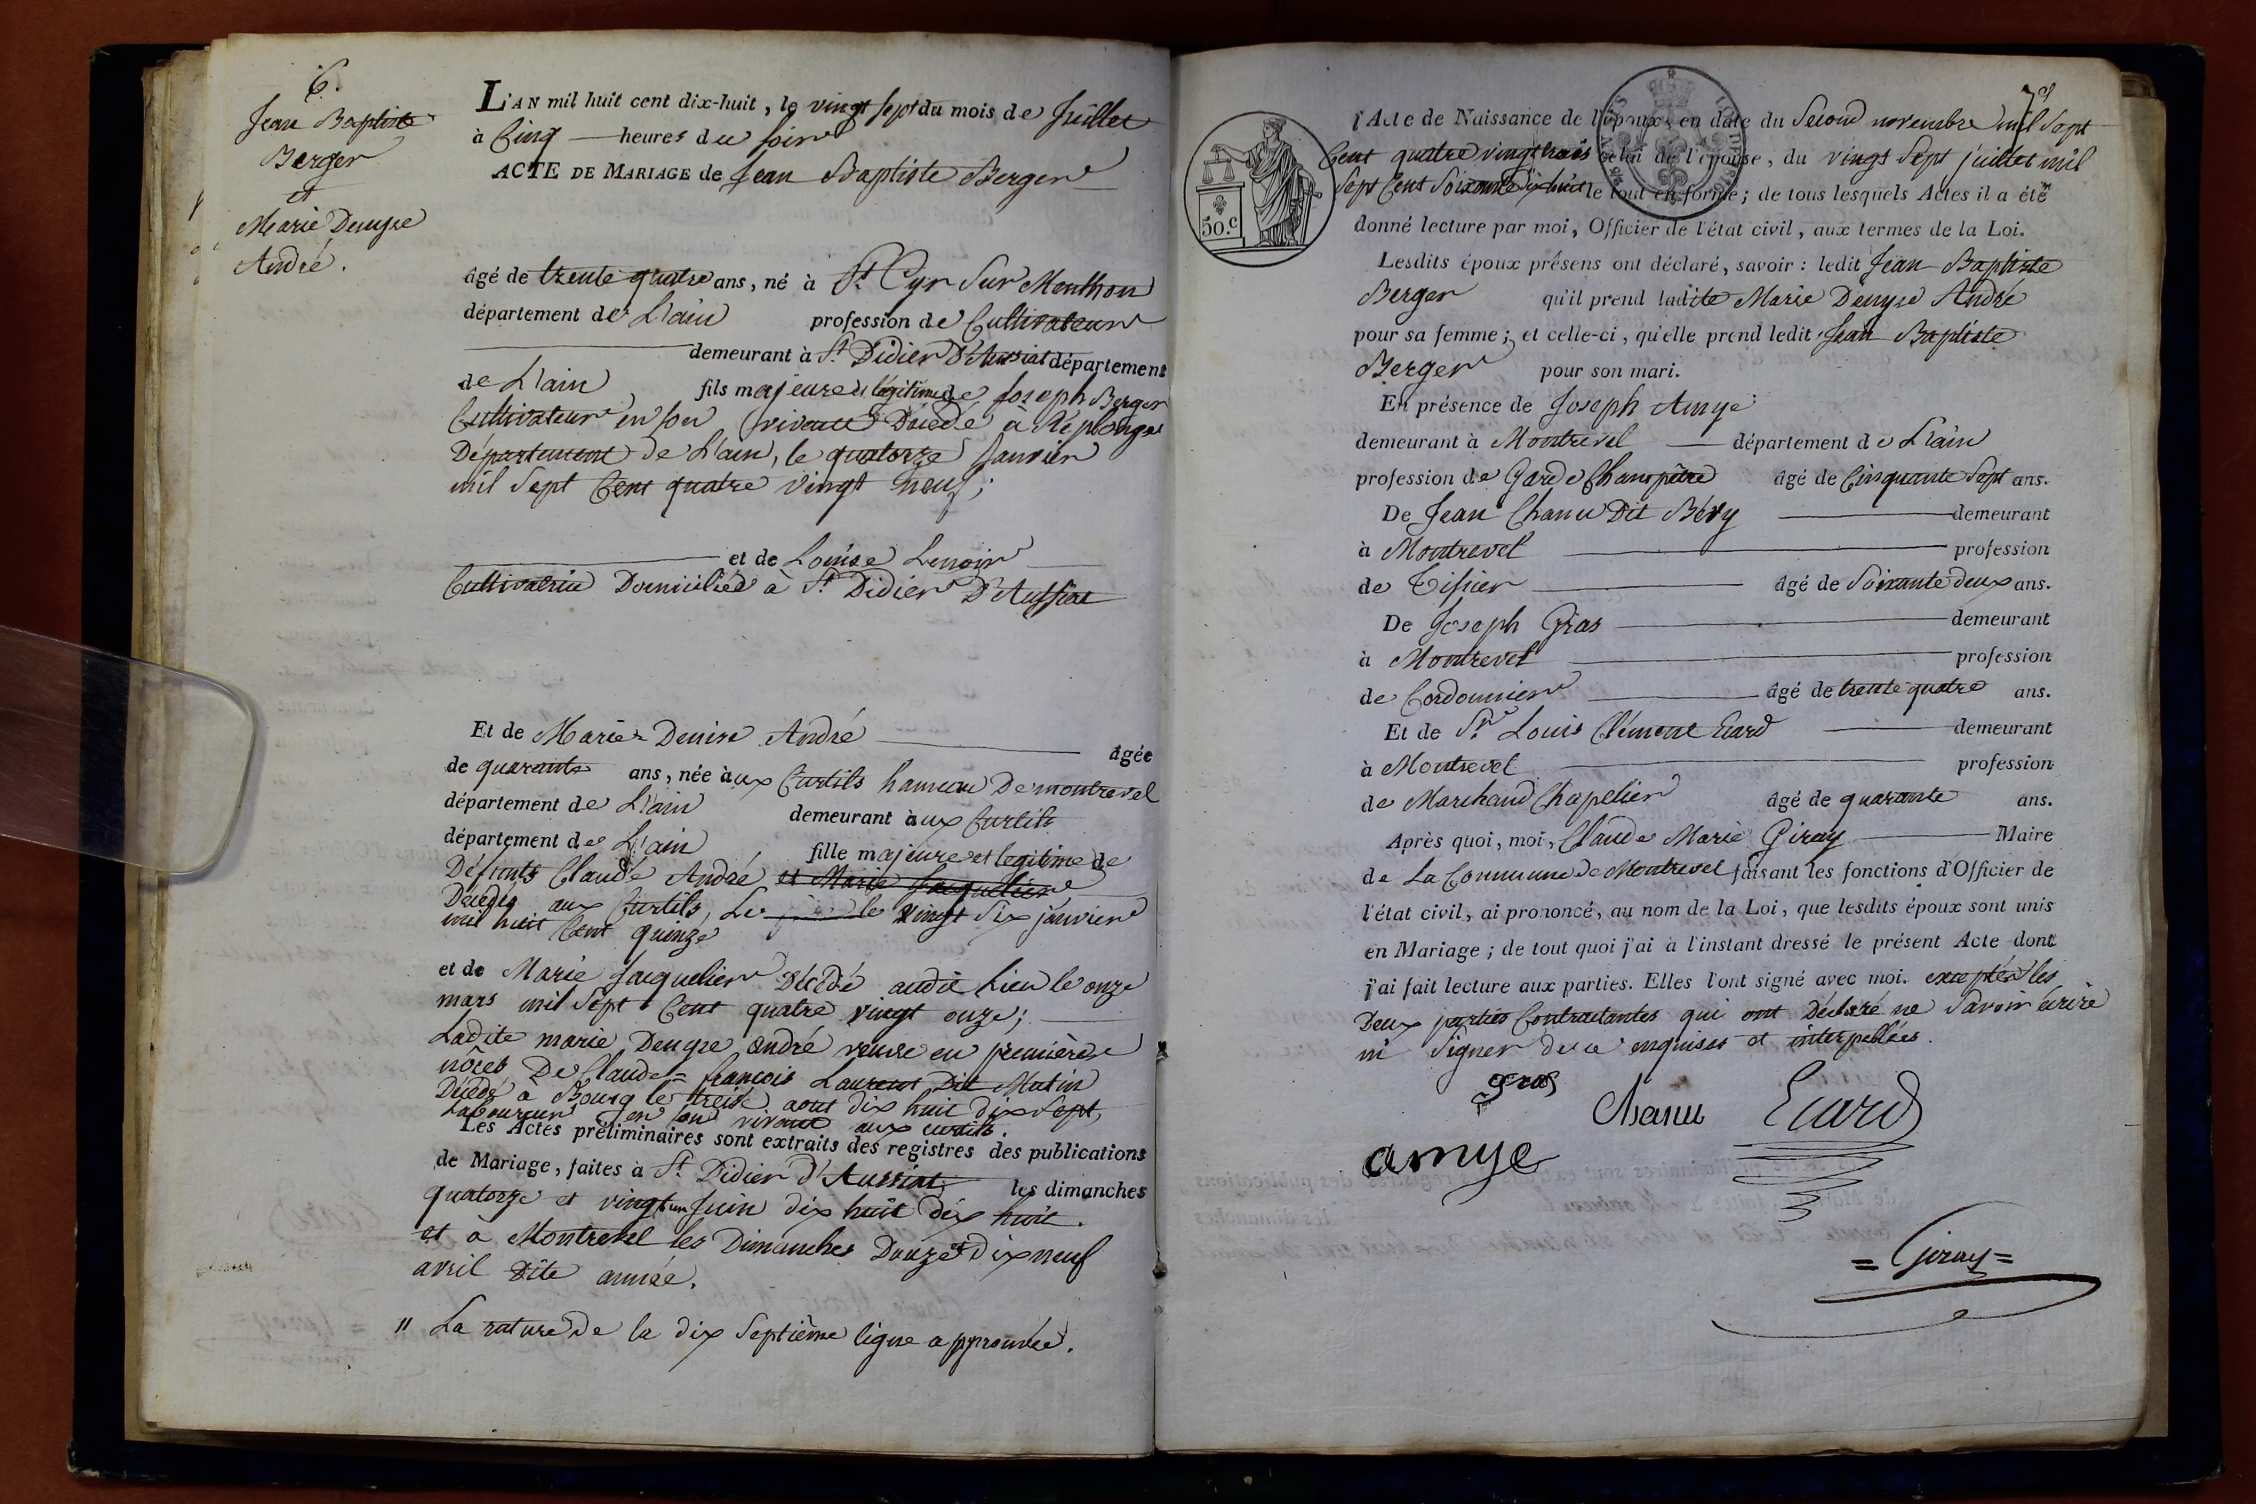 6.
Jean Baptiste
Berger
et
Marie Denyse
André.
L'AN mil huit cent dix-huit, le vingt sept du mois de Juillet
à Cinq heures du soir
ACTE DE MARIAGE de Jean Baptiste Berger
âgé de trente quatre ans, né à St. Cyr Sur Menthon
département de L'ain profession de Cultivateur
demeurant à St. Didier D'Aussiat département
de L'ain fils majeure et légitime de Joseph Berger
Cultivateur en son vivant Décédé à Réplonges
Département de L'ain, le quatorze Janvier
mil Sept Cent quatre vingt neuf;
et de Louise Lenoir
Cultivatrice Domiciliée à St. Didier D'Aussiat
Et de Marie-Denise André agée
de quarante ans, née àux Curtils hameau De montrevel
département de L'ain demeurant àux Curtils
département de L'ain fille majeure et legitime de
Défunts Claude André et Marie Jacquelier
Décédés aux Curtils, Le le vingt Six janvier
mil huit Cent quinze
et de Marie Jacquelier Décédé audit Lieu le onze
mars mil Sept Cent quatre vingt onze;
Ladite marie Denyse andré veuve en première
nôces De Claude=françois Laurent Dit Matin
Décédé à Bourg le treize aout dix huit dix Sept,
Laboureur en son vivant aux curtils.
Les Actes préliminaires sont extraits des registres des publications
de Mariage, faites à St. Didier d'Aussiat, les dimanches
quatorze et vingt un Juin dix huit dix huit.
et à Montrevel les Dimanches Douze et Dix neuf
avril Dite année.
" La rature De la dix Septième ligne approuvée.
l'Acte de Naissance de l'époux, en date du Second novembre mil Sept
Cent quatre vingt trois celui de l'épouse, du vingt Sept juillet mil
Sept Cent Soixante Dix huit le tout en forme; de tous lesquels Actes il a été
donné lecture par moi, Officier de l'état civil, aux termes de la Loi.
50.c
Lesdits époux présens ont déclaré, savoir: ledit Jean Baptiste
Berger qu'il prend ladite Marie Denyse André
pour sa femme; et celle-ci, qu'elle prend ledit Jean Baptiste
Berger pour son mari.
En présence de Joseph Amye
demeurant à Montrevel département de L'ain
profession de Garde Champêtre âgé de Cinquante Sept ans.
De Jean Chanu Dit Béry demeurant
à Montrevel profession
de Tissier âgé de Soixante deux ans.
De Joseph Gras demeurant
à Montrevel profession
de Cordonnier âgé de trente quatre ans.
Et de Sr. Louis Clément Ecard demeurant
à Montrevel profession
de Marchand Chapelier âgé de quarante ans.
Après quoi, moi, Claude Marie Giray Maire
de La Commune de Montrevel faisant les fonctions d'Officier de
l'état civil, ai prononcé, au nom de la Loi, que lesdits époux sont unis
en Mariage; de tout quoi j'ai à l'instant dressé le présent Acte dont
j'ai fait lecture aux parties. Elles l'ont signé avec moi. exceptés les
Deux parties Contractantes qui ont Déclaré ne Savoir écrire
ni Signer de ce enquises et interpellées.
gras
Chanu Ecard
amye
= Giray =